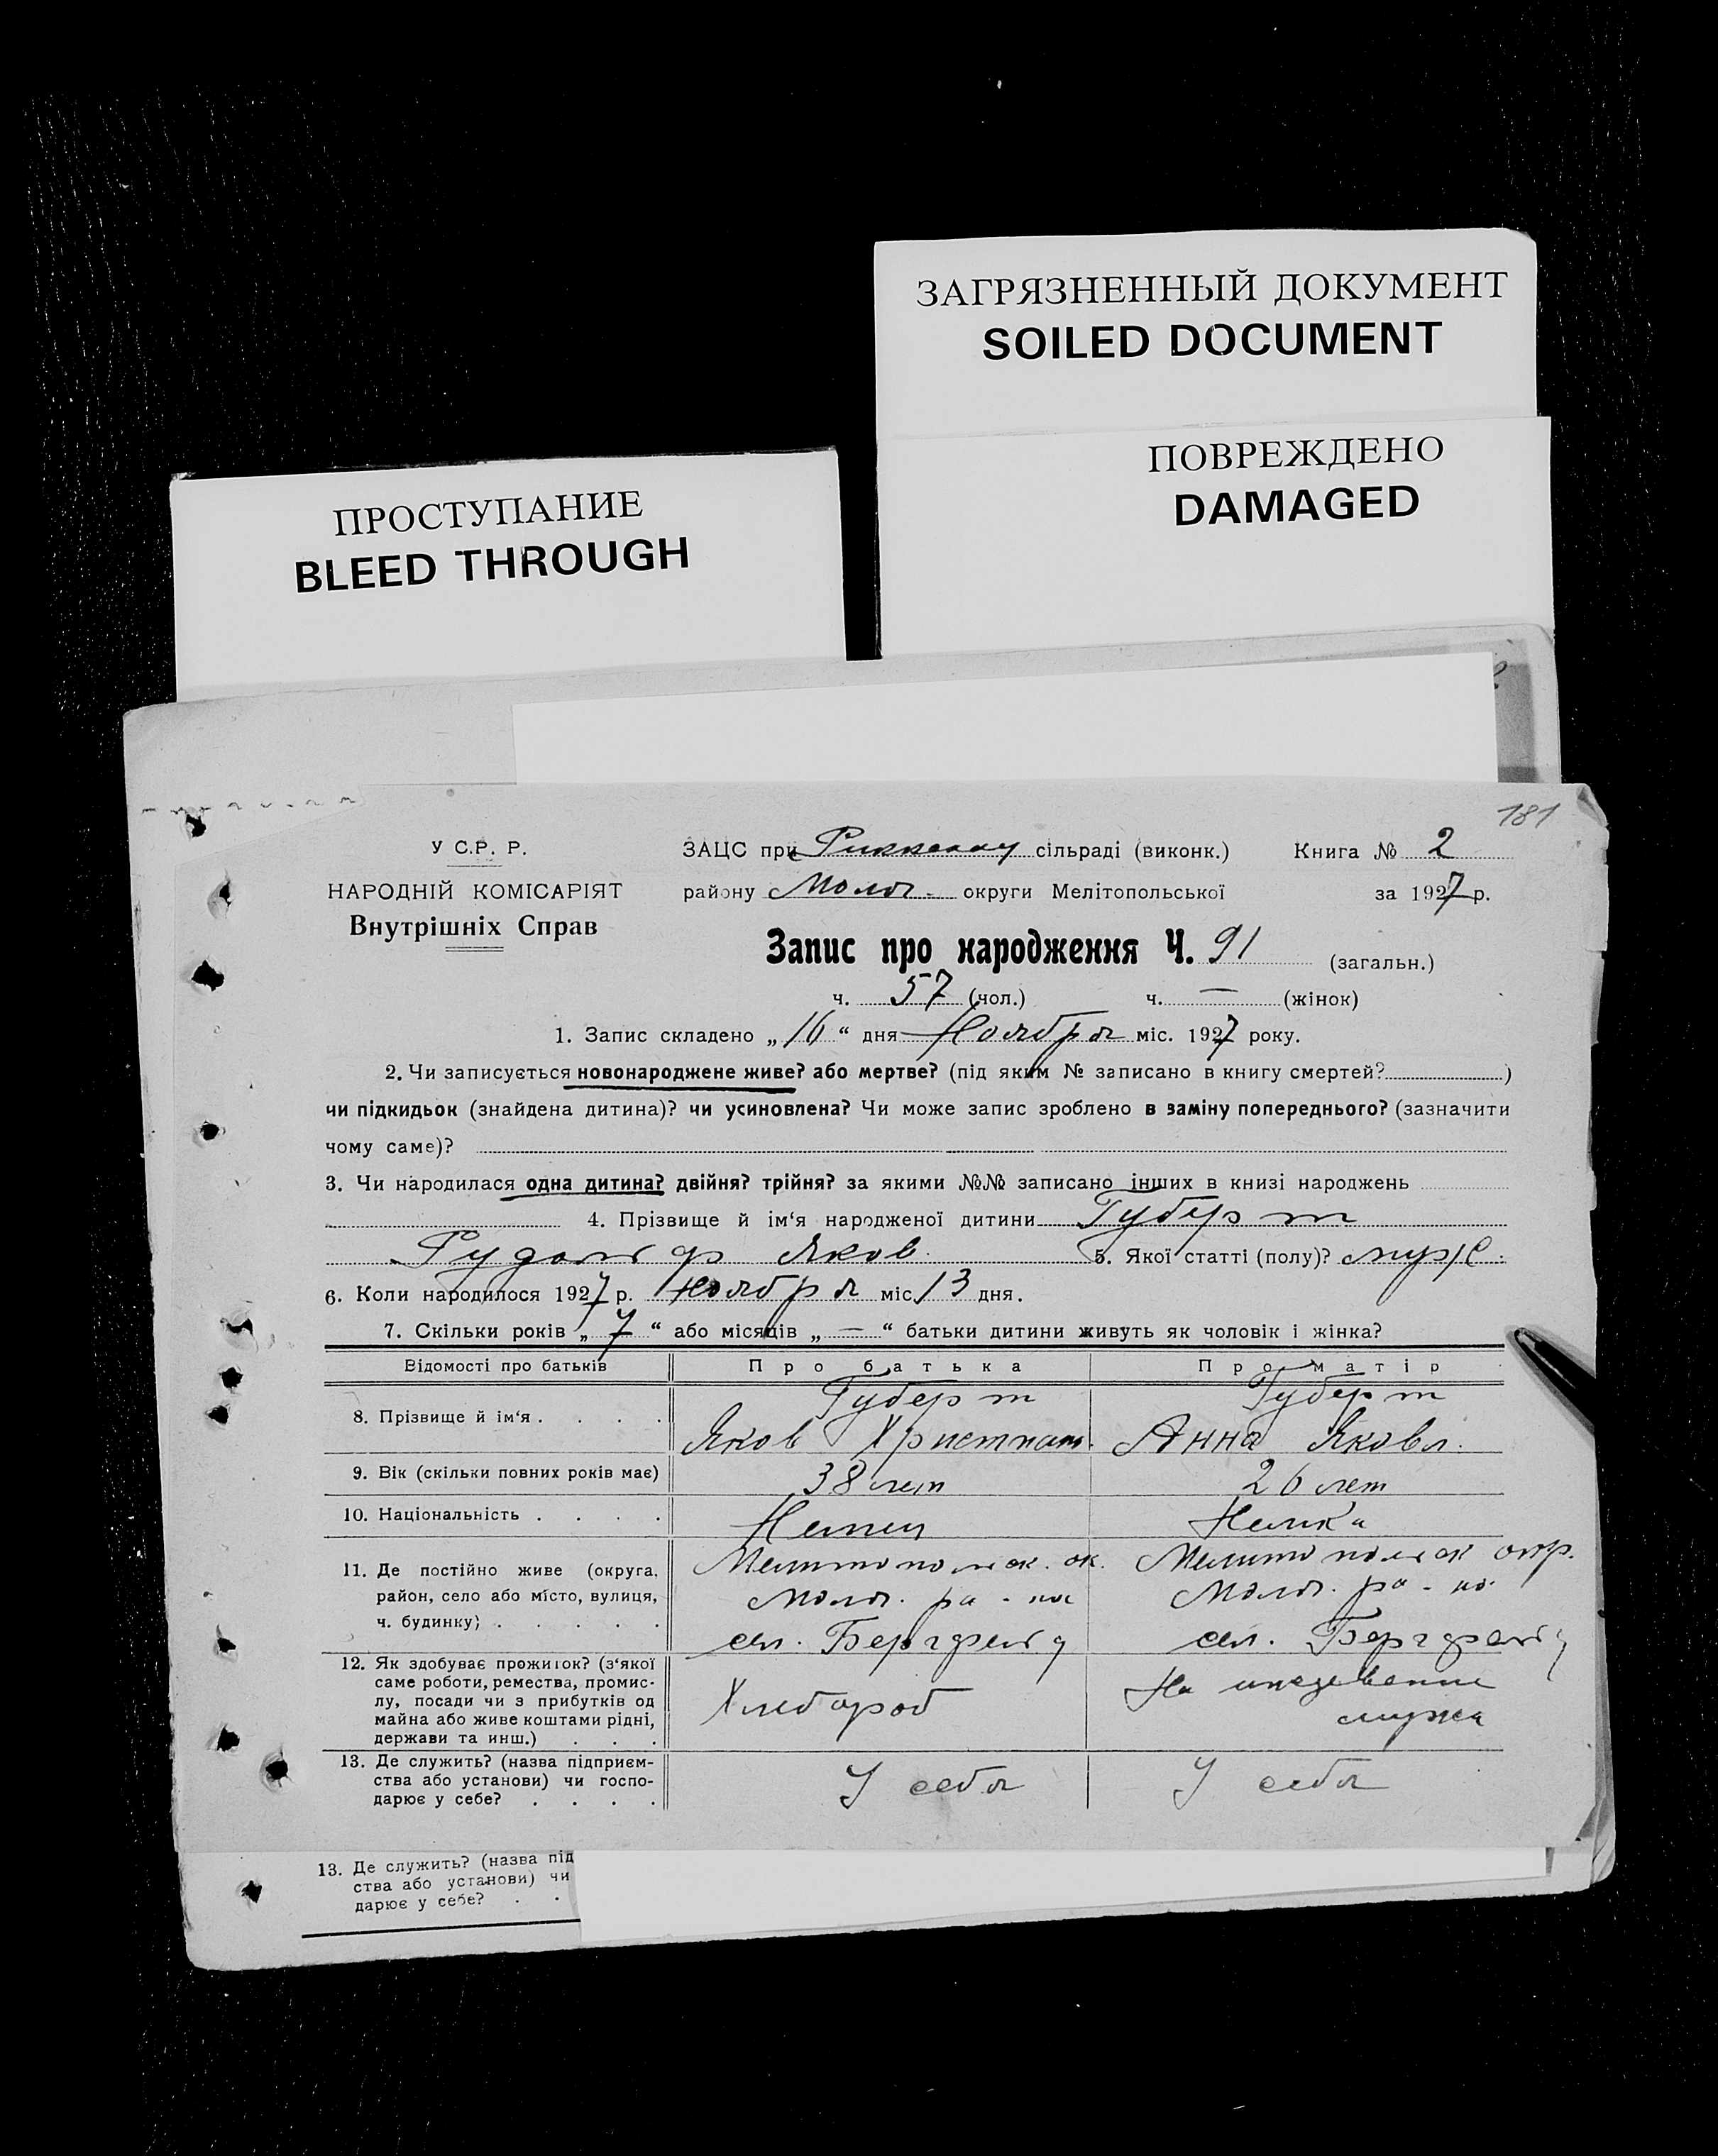 ЗАГРЯЗНЕННЫЙ ДОКУМЕНТ
SOILED DOCUMENT
ПОВРЕЖДЕНО
DAMAGED
ПРОСТУПАНИЕ
BLEED THROUGH
181
У С.Р. Р.
НАРОДНІЙ КОМІСАРІЯТ
Внутрішніх Справ
ЗАЦС при сільраді (виконк.) Книга № 2
району Молоч. округи Мелітопольської за 1927 р.
Запис про народження Ч. 91 (загальн.)
ч. 57 (чол.) ч. — (жінок)
1. Запис складено „16“ дня Ноября міс. 1927 року.
2. Чи записується новонароджене живе? або мертве? (під яким № записано в книгу смертей? )
чи підкидьок (знайдена дитина)? чи усиновлена? Чи може запис зроблено в заміну попереднього? (зазначити
чому саме)?
3. Чи народилася одна дитина? двійня? трійня? за якими №№ записано інших в книзі народжень
4. Прізвище й ім'я народженої дитини Губерт
Рудольф Яков. 5. Якої статті (полу)? муж.
6. Коли народилося 1927 р. Ноября міс 13 дня.
7. Скільки років „7“ або місяців „—“ батьки дитини живуть як чоловік і жінка?
Відомості про батьків Про батька Про матір
8. Прізвище й ім'я . . . . Губерт Яков Христиан. Губерт Анна Яковл.
9. Вік (скільки повних років має) 38 лет 26 лет
10. Національність . . . . Немец Немка
11. Де постійно живе (округа, Мелитопольск. ок. Мелитопольск окр.
район, село або місто, вулиця, Молоч. ра-на Молоч. ра-на
ч. будинку) . . . . . сел. Бергфельд сел. Бергфельд
12. Як здобуває прожиток? (з'якої
саме роботи, ремества, промис-
лу, посади чи з прибутків од
майна або живе коштами рідні,
держави та инш.) . . . Хлебороб На иждевении мужа
13. Де служить? (назва підприєм-
ства або установи) чи госпо-
дарює у себе? . . . . У себя У себя
13. Де служить? (назва під
ства або установи) чи
дарює у себе? . .